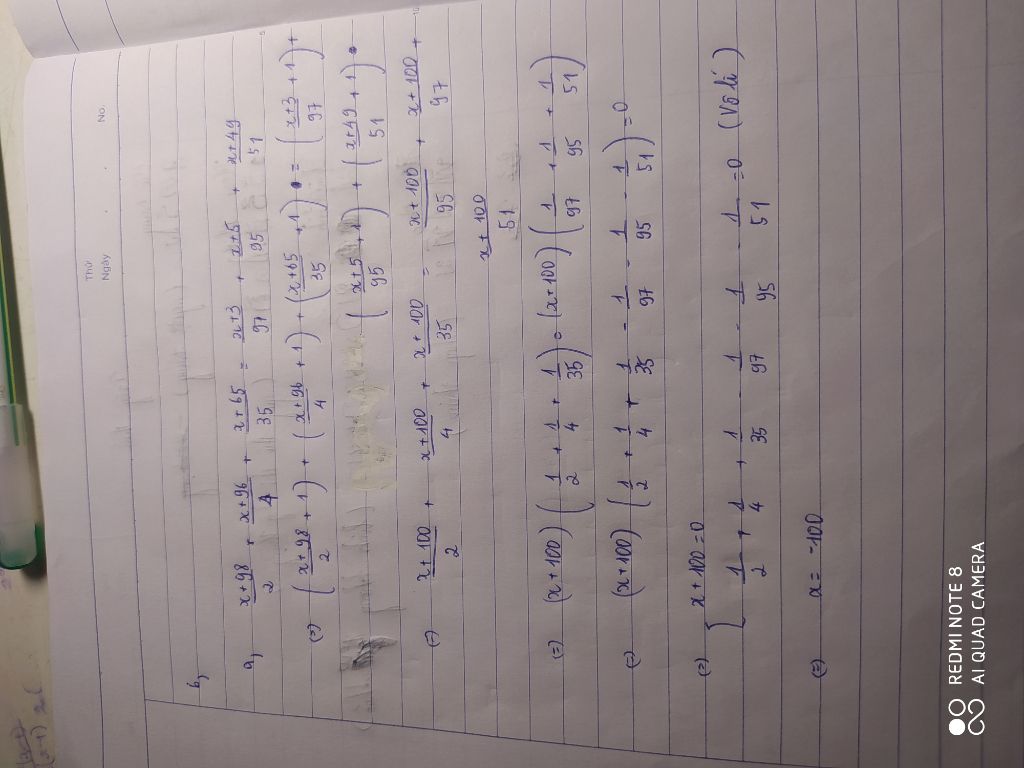 No.
Thứ
Ngày
b,
a, x+98/2 + x+96/4 + x+65/35 = x+3/97 + x+5/95 + x+49/51
(=) (x+98/2 + 1) + (x+96/4 + 1) + (x+65/35 + 1) = (x+3/97 + 1) +
(x+5/95 + 1) + (x+49/51 + 1)
(=) x+100/2 + x+100/4 + x+100/35 = x+100/95 + x+100/97 +
x+100/51
(=) (x+100) (1/2 + 1/4 + 1/35) = (x+100) (1/97 + 1/95 + 1/51)
(=) (x+100) (1/2 + 1/4 + 1/35 - 1/97 - 1/95 - 1/51) = 0
(=) [ x+100=0
1/2 + 1/4 + 1/35 - 1/97 - 1/95 - 1/51 =0 (Vô lí)
(=) x = -100
REDMI NOTE 8
AI QUAD CAMERA